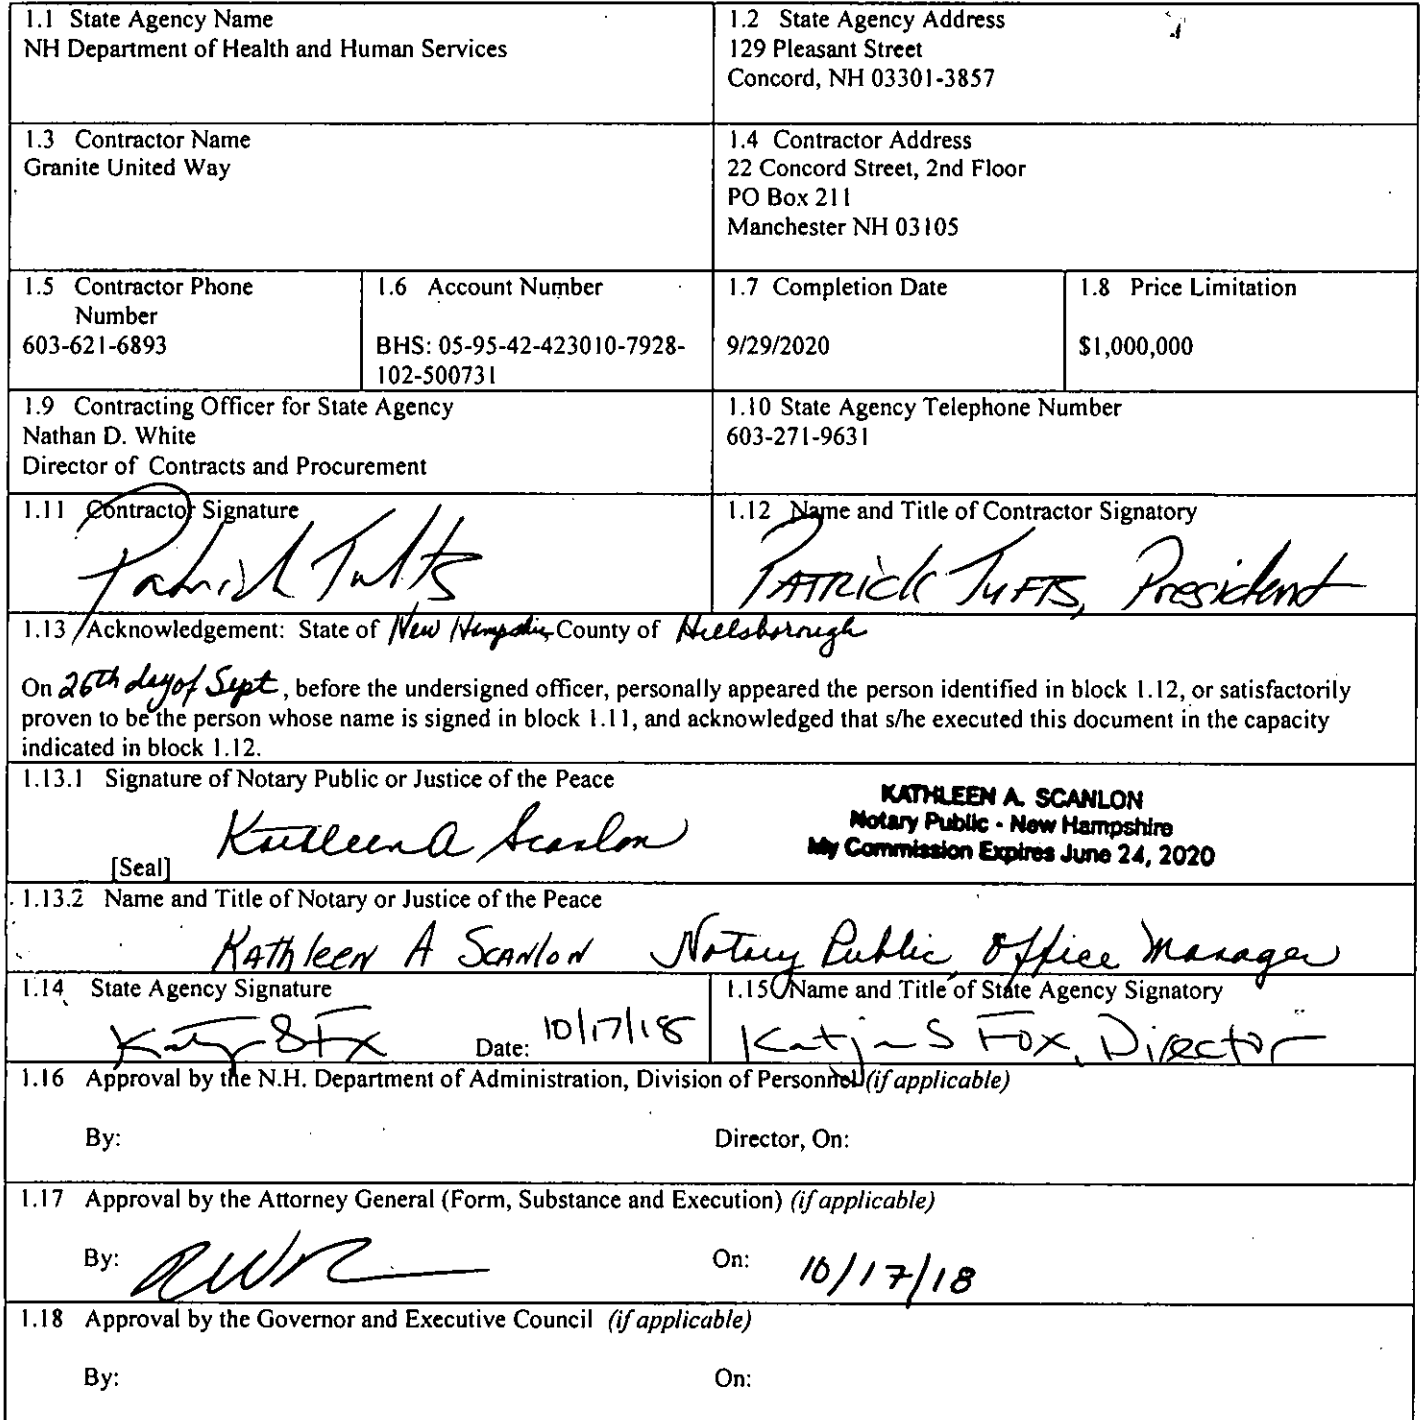 1.1 State Agency Name
NH Department of Health and Human Services
1.2 State Agency Address
129 Pleasant Street
Concord, NH 03301-3857
1.3 Contractor Name
Granite United Way
1.4 Contractor Address
22 Concord Street, 2nd Floor
PO Box 211
Manchester NH 03105
1.5 Contractor Phone
Number
603-621-6893
1.6 Account Number
BHS: 05-95-42-423010-7928-
102-500731
1.7 Completion Date
9/29/2020
1.8 Price Limitation
$1,000,000
1.9 Contracting Officer for State Agency
Nathan D. White
Director of Contracts and Procurement
1.10 State Agency Telephone Number
603-271-9631
1.11 Contractor Signature
Patrick Tufts
1.12 Name and Title of Contractor Signatory
PATRICK TUFTS, President
1.13 Acknowledgement: State of New Hampshire, County of Hillsborough
On 26th day of Sept, before the undersigned officer, personally appeared the person identified in block 1.12, or satisfactorily
proven to be the person whose name is signed in block 1.11, and acknowledged that s/he executed this document in the capacity
indicated in block 1.12.
1.13.1 Signature of Notary Public or Justice of the Peace
Kathleen A Scanlon
[Seal]
KATHLEEN A. SCANLON
Notary Public - New Hampshire
My Commission Expires June 24, 2020
1.13.2 Name and Title of Notary or Justice of the Peace
Kathleen A Scanlon Notary Public, Office Manager
1.14 State Agency Signature
Date: 10/17/18
1.15 Name and Title of State Agency Signatory
Katja S Fox, Director
1.16 Approval by the N.H. Department of Administration, Division of Personnel (if applicable)
By:
Director, On:
1.17 Approval by the Attorney General (Form, Substance and Execution) (if applicable)
By:
On: 10/17/18
1.18 Approval by the Governor and Executive Council (if applicable)
By:
On: